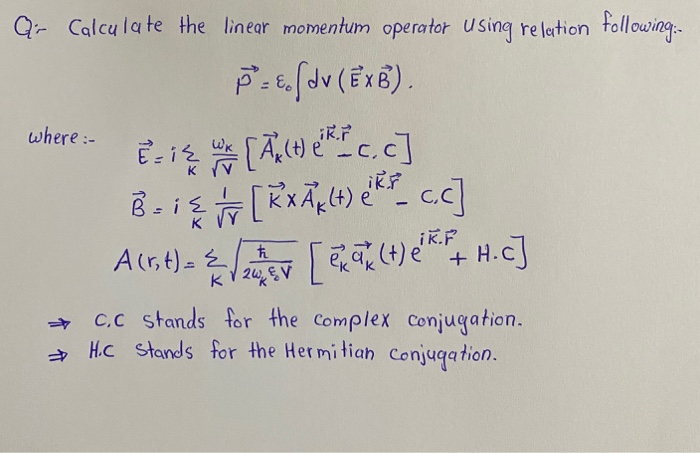 Q:- Calculate the linear momentum operator using relation following:-
p⃗ = ε₀∫dv (E⃗×B⃗).
where:-
E⃗ = i Σ_K ω_K/√V [A⃗_K(t) e^{iK⃗.r⃗} - C.C]
B⃗ = i Σ_K 1/√V [K⃗×A⃗_K(t) e^{iK⃗.r⃗} - C.C]
A(r,t) = Σ_K √(ħ/2ω_Kε₀V) [e⃗_K a⃗_K(t) e^{iK⃗.r⃗} + H.C]
⇒ C.C stands for the complex conjugation.
⇒ H.C stands for the Hermitian conjugation.